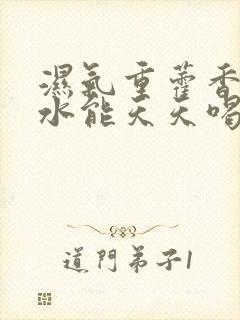 濕氣重藿香
水能天天喝
道門弟子1